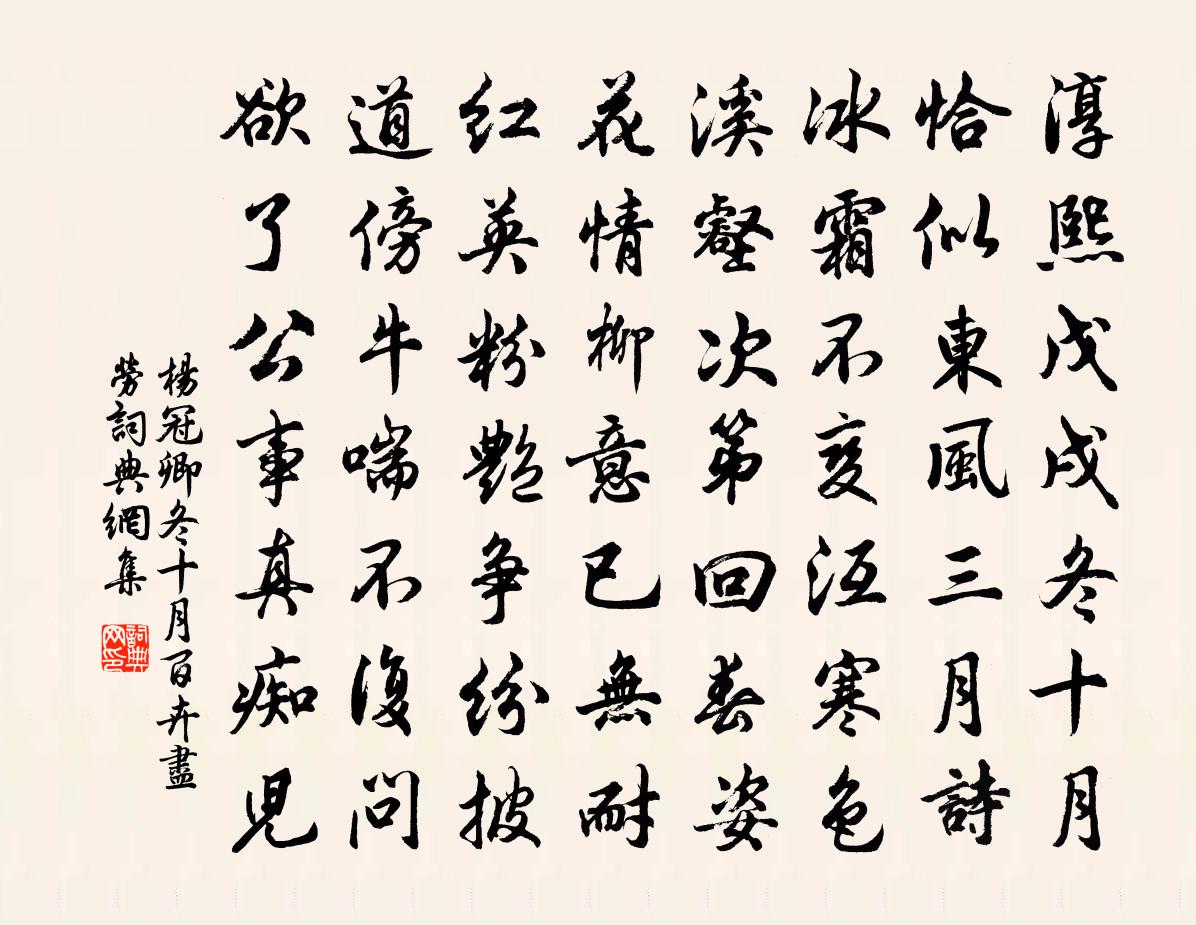 淳熙戊戌冬十月
恰似東風三月詩
冰霜不变沍寒色
溪壑次第回春姿
花情柳意已無耐
紅英粉艷争紛披
道傍牛喘不復問
欲了公事真痴児
楊冠卿冬十月百卉盡
勞詞典網集
詞典
网印